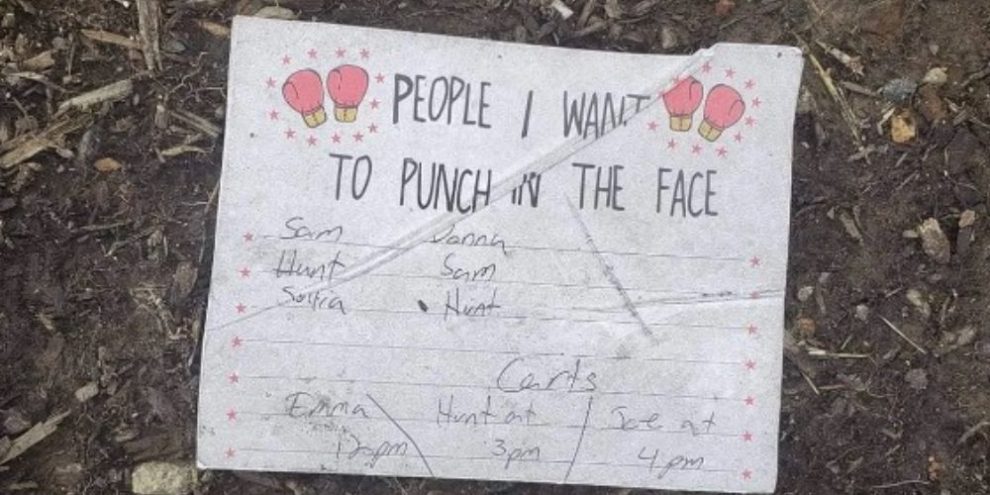 PEOPLE I WANT
TO PUNCH IN THE FACE
Sam Danny
Hunt Sam
Hunt
Carts
Emma Hunt at Joe at
12pm 3pm 4pm